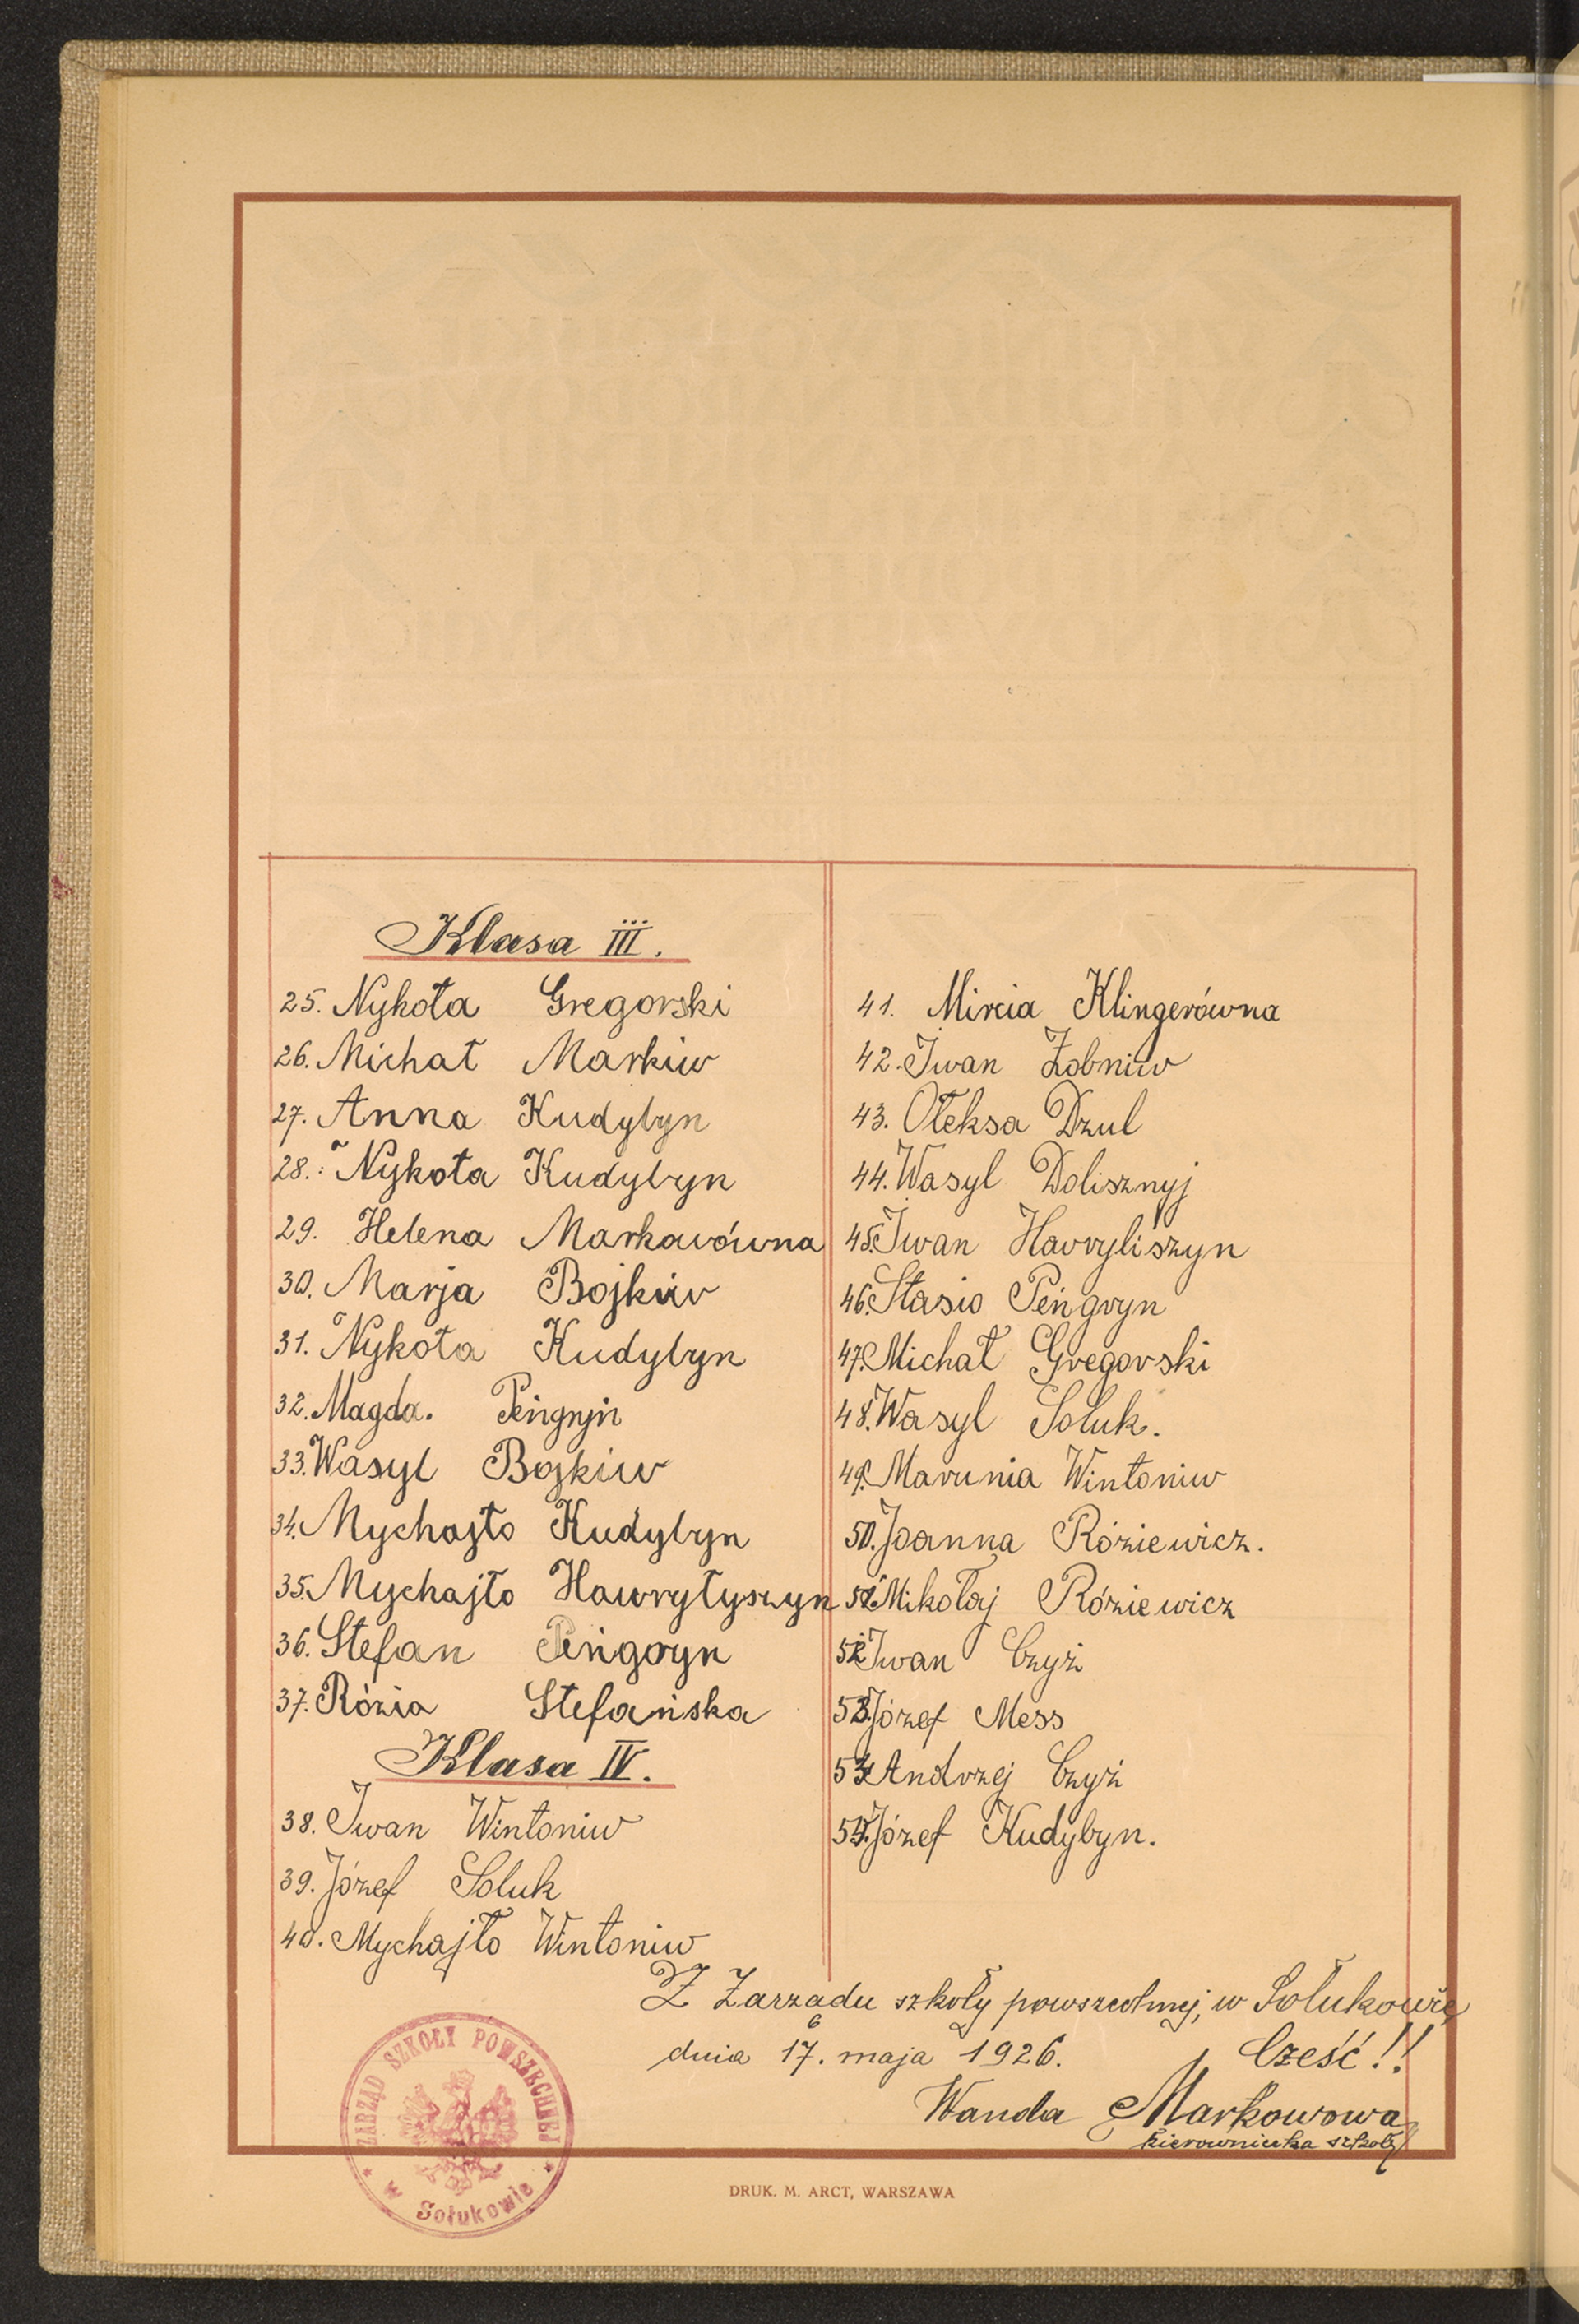 Klasa III.
25. Nykoła Gregorski
26. Michał Markiw
27. Anna Kudybyn
28. Nykoła Kudybyn
29. Helena Markowówna
30. Marja Bojkiw
31. Nykoła Kudybyn
32. Magda. Pengryn
33. Wasyl Bojkiw
34. Mychajło Kudybyn
35. Mychajło Hawryłyszyn
36. Stefan Pengryn
37. Rózia Stefańska
Klasa IV.
38. Iwan Wintoniw
39. Józef Soluk
40. Mychajło Wintoniw
41. Mircia Klingerówna
42. Iwan Żobniw
43. Ołeksa Dzul
44. Wasyl Dolisznyj
45. Iwan Havryliszyn
46. Stasio Pengryn
47. Michał Gregorski
48. Wasyl Soluk.
49. Marunia Wintoniw
50. Joanna Róziewicz.
51. Mikołaj Róziewicz
52. Iwan Czyż
53. Józef Mess
54. Andrzej Czyż
55. Józef Kudybyn.
Z Zarządu szkoły powszechnej, w Sołukowie,
dnia 17. maja 1926. Cześć!!
Wanda Markowowa
kierowniczka szkoły
ZARZĄD SZKOŁY POWSZECHNEJ
w Sołukowie
DRUK. M. ARCT, WARSZAWA